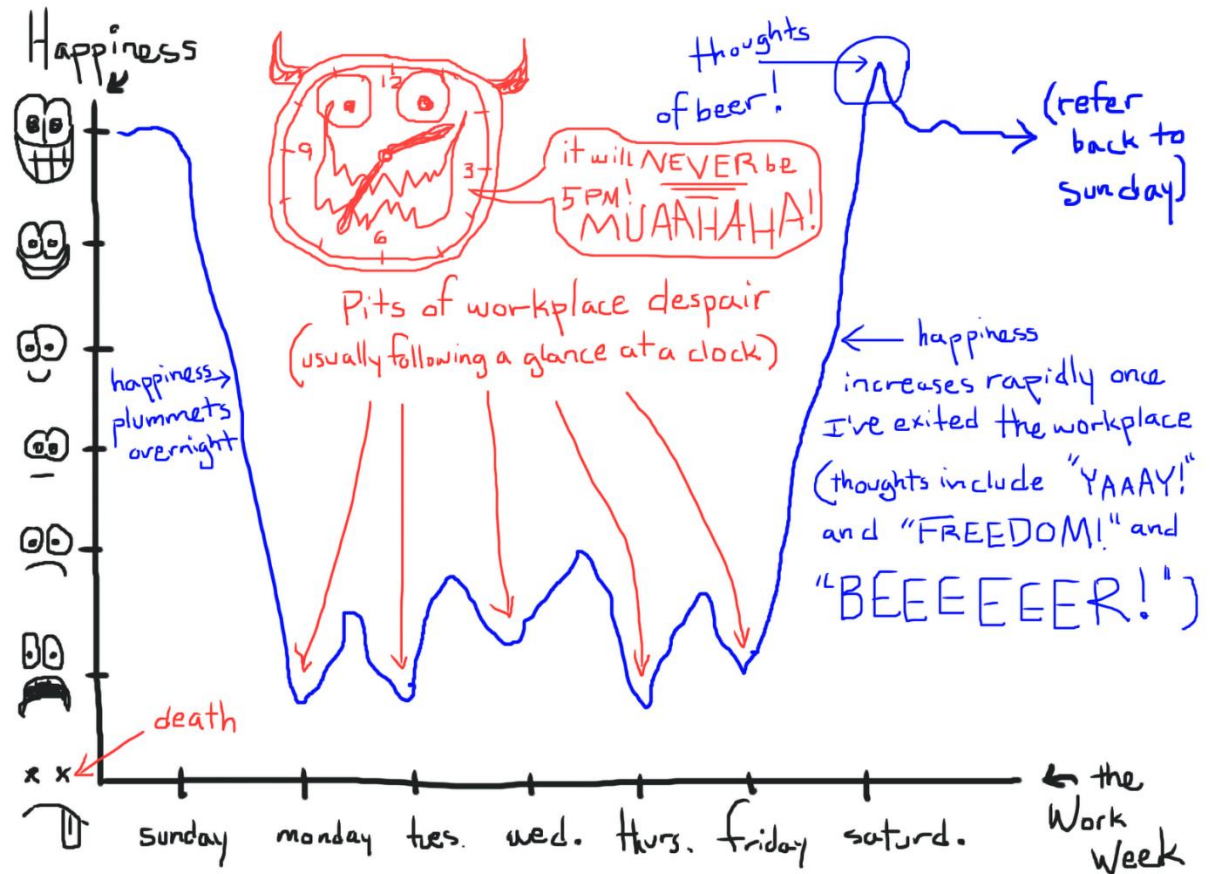 Happiness
12
3
6
9
it will NEVER be
5 PM!
MUAAHAHA!
thoughts
of beer!
(refer
back to
sunday)
Pits of workplace despair
(usually following a glance at a clock)
happiness
plummets
overnight
happiness
increases rapidly once
I've exited the workplace
(thoughts include "YAAAY!"
and "FREEDOM!" and
"BEEEEEER!")
death
sunday
monday
tues.
wed.
thurs.
friday
saturd.
the
Work
Week